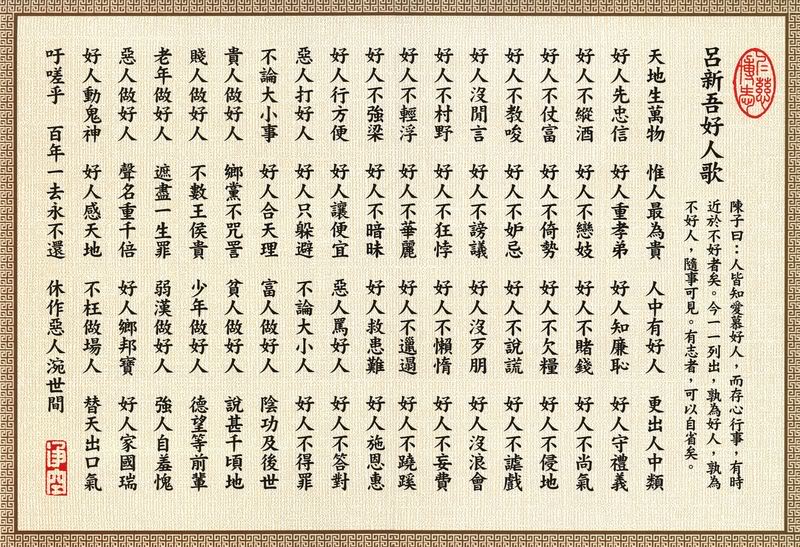 呂新吾好人歌
陳子曰：人皆知愛慕好人，而存心行事，有時
近於不好者矣。今一一列出，孰為好人，孰為
不好人，隨事可見。有志者，可以自省矣。
天地生萬物 惟人最為貴 人中有好人 更出人中類
好人先忠信 好人重孝弟 好人知廉恥 好人守禮義
好人不縱酒 好人不戀妓 好人不賭錢 好人不尚氣
好人不仗富 好人不倚勢 好人不欠糧 好人不侵地
好人不教唆 好人不妒忌 好人不說謊 好人不謔戲
好人沒閒言 好人不謗議 好人沒歹朋 好人沒浪會
好人不村野 好人不狂悖 好人不懶惰 好人不妄費
好人不輕浮 好人不華麗 好人不邋遢 好人不蹺蹊
好人不強梁 好人不暗昧 好人救患難 好人施恩惠
好人行方便 好人讓便宜 惡人罵好人 好人不答對
惡人打好人 好人只躲避 不論大小人 好人不得罪
不論大小事 好人合天理 富人做好人 陰功及後世
貴人做好人 鄉黨不咒詈 貧人做好人 說甚千頃地
賤人做好人 不數王侯貴 少年做好人 德望等前輩
老年做好人 遮盡一生罪 弱漢做好人 強人自羞愧
惡人做好人 聲名重千倍 好人鄉邦寶 好人家國瑞
好人動鬼神 好人感天地 不枉做場人 替天出口氣
吁嗟乎 百年一去永不還 休作惡人涴世間